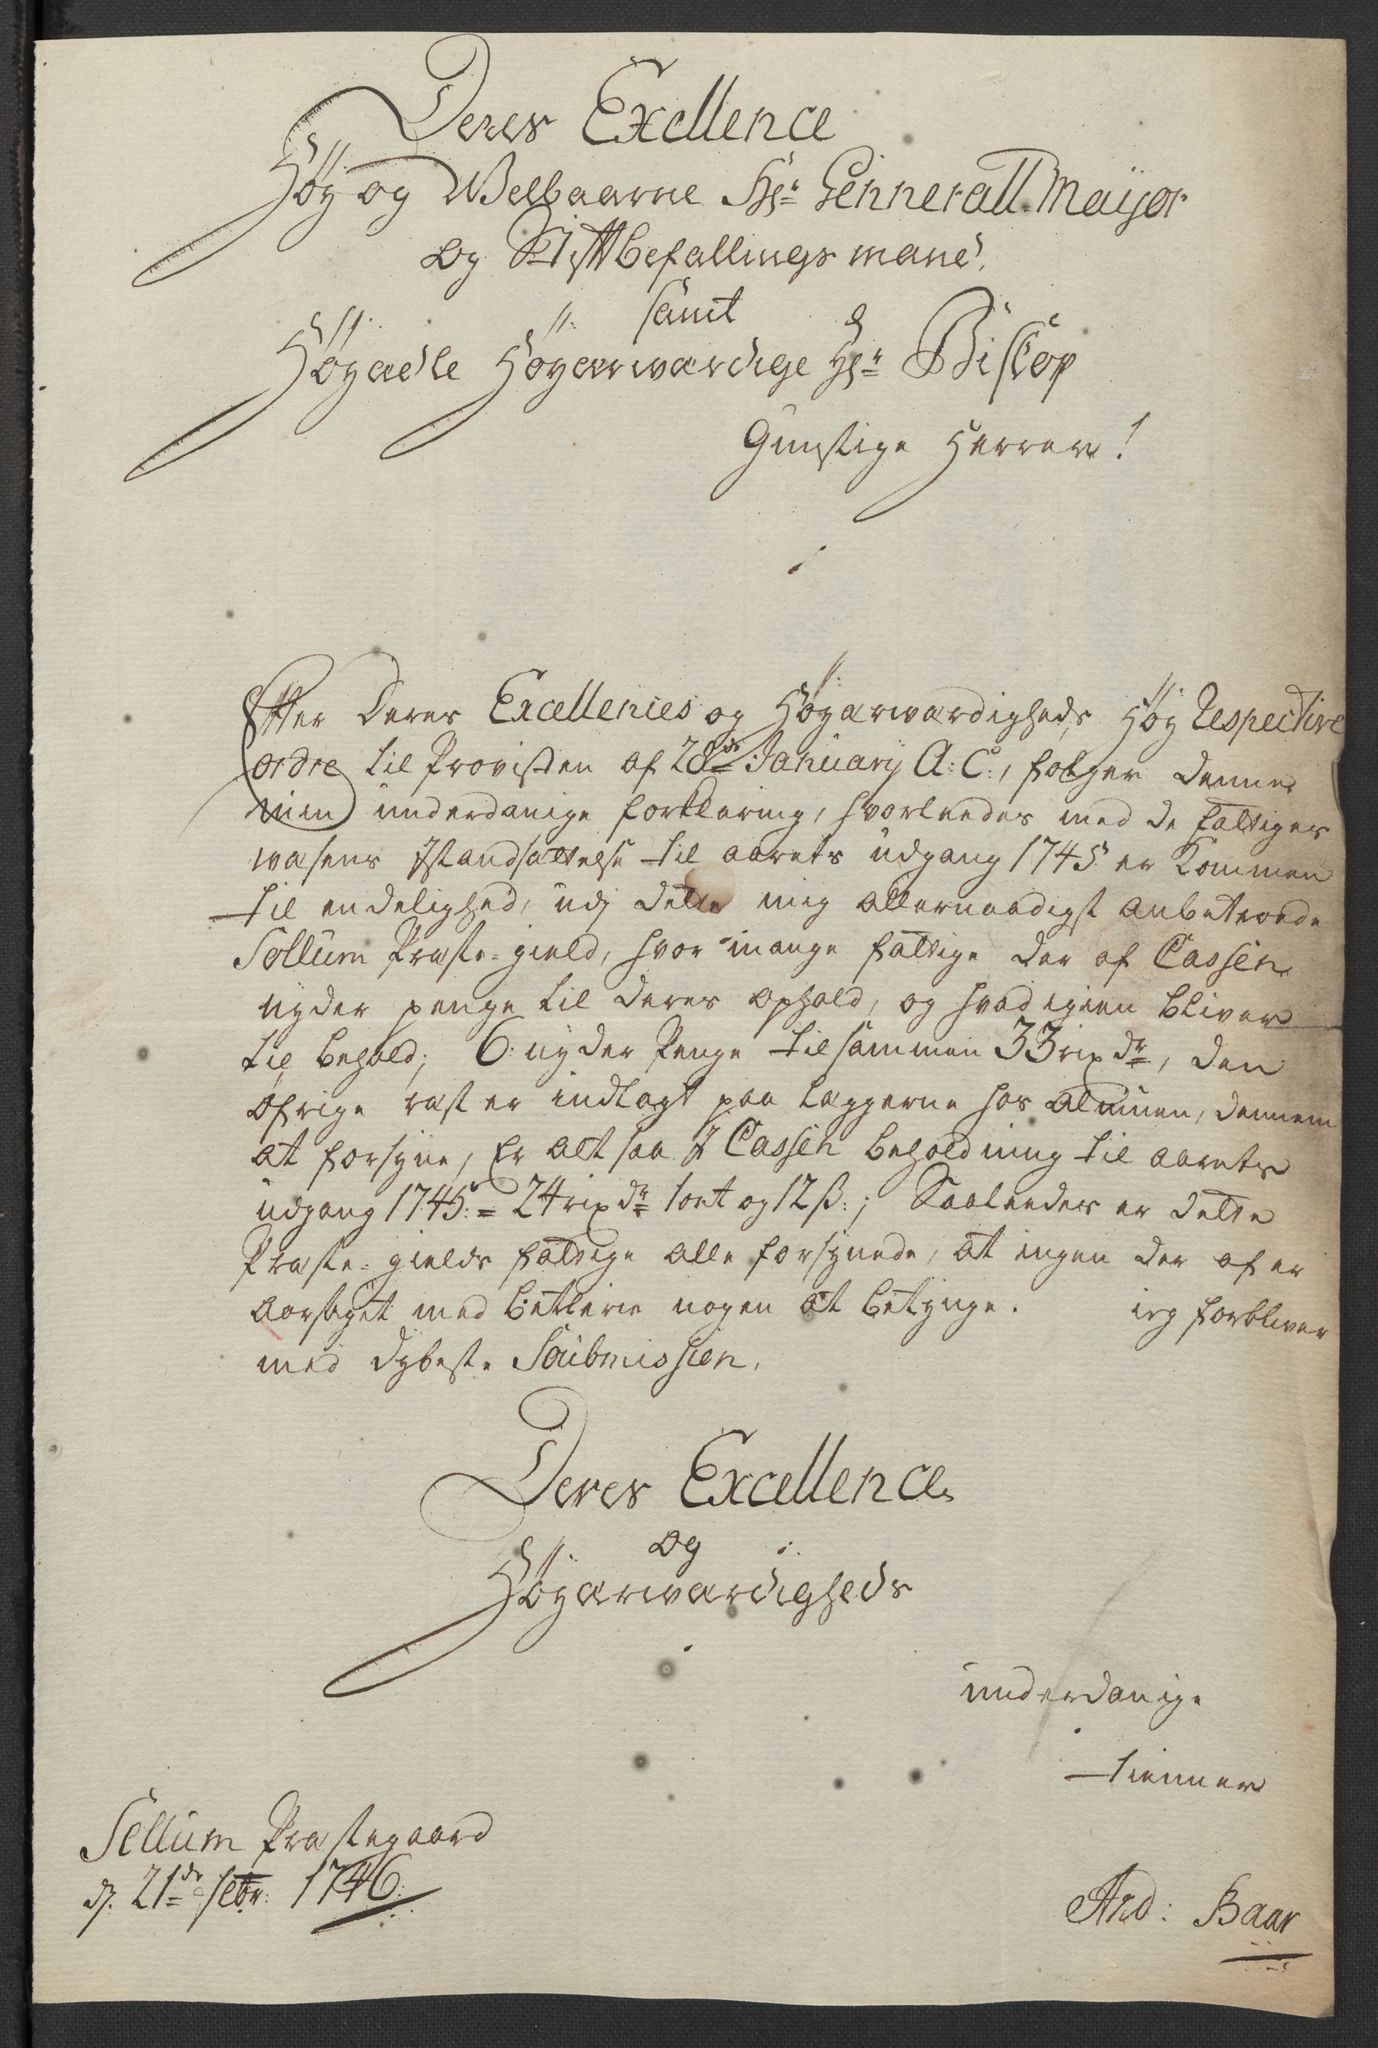 Deres Exellence
Høy og Welbaarne Hr: Gennerall Maijor
og Stiftbefallings mand,
samt
Høyædle Høyærwærdige Hr: Biskop
Gunstige Herrer!
Efter Deres Excellences og Høyærwærdigheds Høy Respective
ordre til Provsten af 28de January A: C:, følger denne
min underdanige forklaring, hvorleedes med de fattiges
wæsens Istandsættelse til aarets udgang 1745 er kommen
til endelighed, udj dette mig allernaadigst anbetroede
Søllum Præste-gield, hvor mange fattige der af Cassen
nyder penge til deres ophold, og hvad igien bliver
til behold; 6: nyder Penge tilsammen 33 rix dr, den
øfrige rest er indlagt paa læggerne hos almuen, dennem
at forsyne, Er alt saa J Cassen beholdning til aarets
udgang 1745:= 24 rix dr 1 ort og 12 ß:; Saaleedes er dette
Præste-gields fattige alle forsynede, at ingen der af er
aarsaget med betlerie nogen at betynge. ieg forbliver
med dybeste Soubmission,
Deres Excellences
og
Høyærwærdigheds
underdanige
tienner
Søllum Præstegaard
d. 21de febr: 1746:
And: Baar